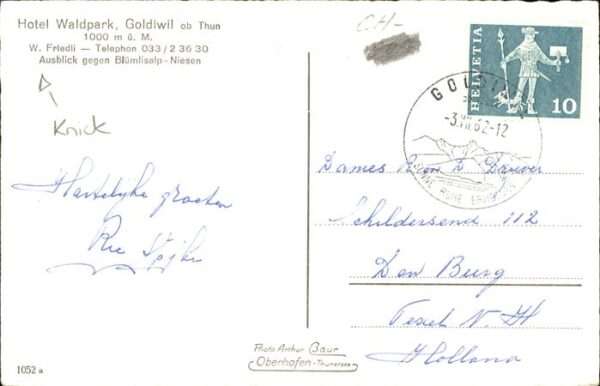 Hotel Waldpark, Goldiwil ob Thun
1000 m ü. M.
W. Friedli — Telephon 033/2 36 30
Ausblick gegen Blümlisalp - Niesen
Knick
Hartelijke groeten
Rie
CH-
HELVETIA
10
-3.VII.62-12
Dames
Schildersend 112
Den Burg
Texel N. H
Holland
Photo Arthur Baur
Oberhofen-Thunersee
1052 a